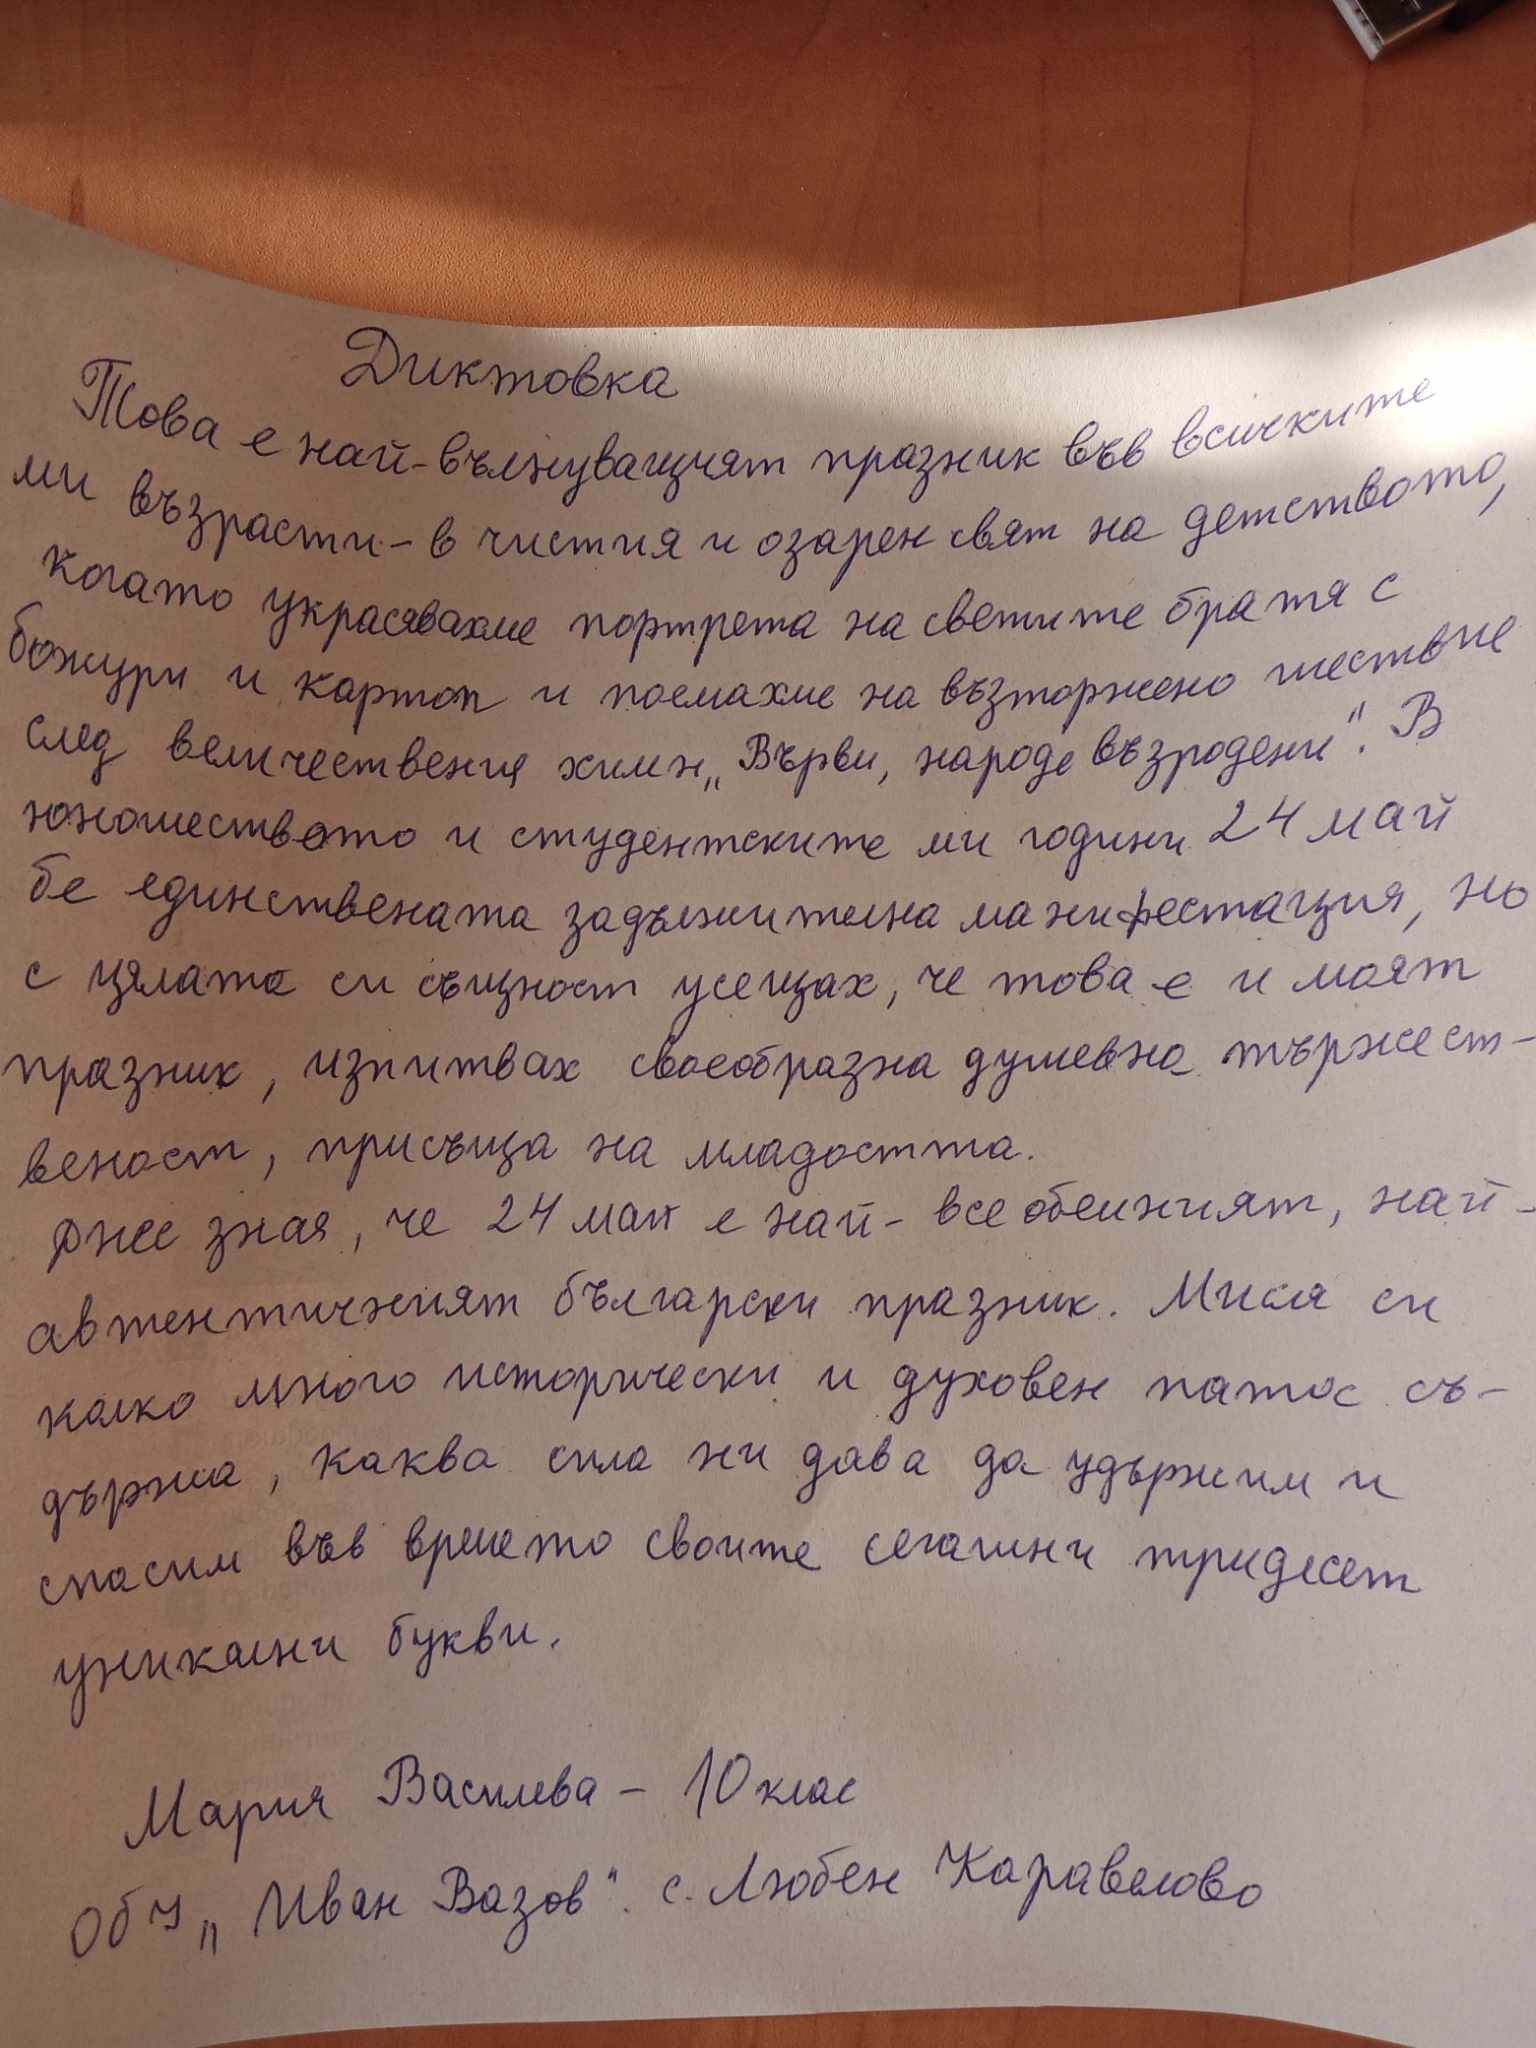 Диктовка
Това е най-вълнуващият празник във всичките
ми възрасти - в чистия и озарен свят на детството,
когато украсявахме портрета на светите братя с
божури и картоп и поемахме на възторжено шествие
след величествения химн „Върви, народе възродени". В
юношеството и студентските ми години 24 май
бе единствената задължителна манифестация, но
с цялата си същност усещах, че това е и моят
празник, изпитвах своеобразна душевна тържест-
веност, присъща на младостта.
Днес зная, че 24 май е най-всеобещният, най-
автентичният български празник. Мисля си
колко много исторически и духовен патос съ-
държа, каква сила ни дава да удържим и
спасим във времето своите сегашни тридесет
уникални букви.
Мария Василева - 10 клас
ОбУ „Иван Вазов". с. Любен Каравелово